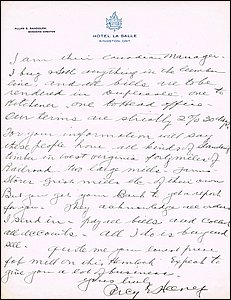 ALLAN S. RANDOLPH
MANAGING DIRECTOR
HOTEL LA SALLE
KINGSTON, ONT.
I am their Canadian Manager.
I buy & sell anything in the lumber
line, and the bills are to be
rendered in Duplicate, one to
Kitchener one to Head office
Our terms are strictly 2% 20 days
For your information will say
these people have all kinds of Standing
timber in West Virginia
Railroad two large mills
mills etc of their own
But you get your
They acknowledge all orders
I send in & pay all bills, and
all accounts. All I do is buy and
sell.
Quote me your lowest price
fob mill on this Hemlock Expect to
give you a lot of business.
Yours truly
Percy